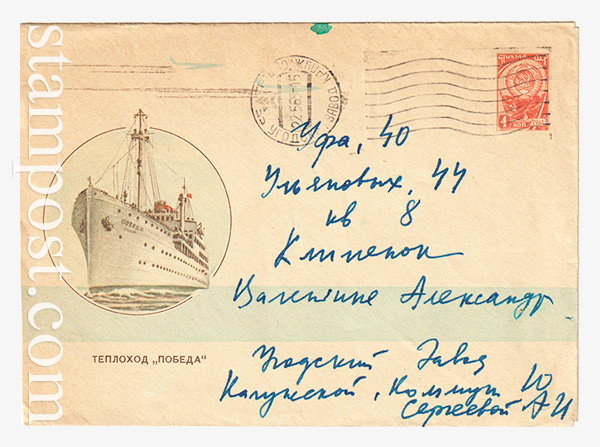 stampost.com
ПОЧТА СССР
4 КОП
ПОБЕДА
Уфа, 40
Ульяновых, 44
кв 8
Клименок
Валентине Александр.
ТЕПЛОХОД „ПОБЕДА“
Угодский Завод
Калужской, Коммун 10
Сергеевой А И